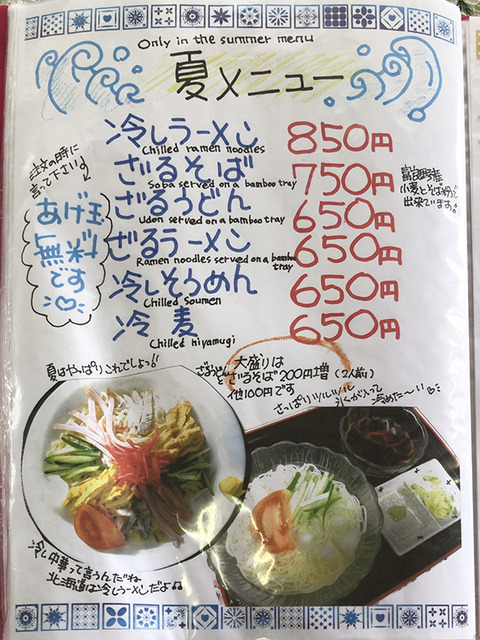 Only in the summer menu
夏メニュー
冷しラーメン 850円
Chilled ramen noodles
ざるそば 750円
Soba served on a bamboo tray
ざるうどん 650円
Udon served on a bamboo tray
ざるラーメン 650円
Ramen noodles served on a bamboo tray
冷しそうめん 650円
Chilled Soumen
冷麦 650円
Chilled hiyamugi
注文の時に
言って下さい!
あげ玉
無料
です
小麦とそば粉で
出来ています!
夏はやっぱりこれでしょっ!!
大盛りは
ざるうどんと
ざるそば 200円増 (2人前)
他100円です
さっぱりツルツル
冷めた〜い
冷し中華って言うんだね
北海道は冷しラーメンだよ♫